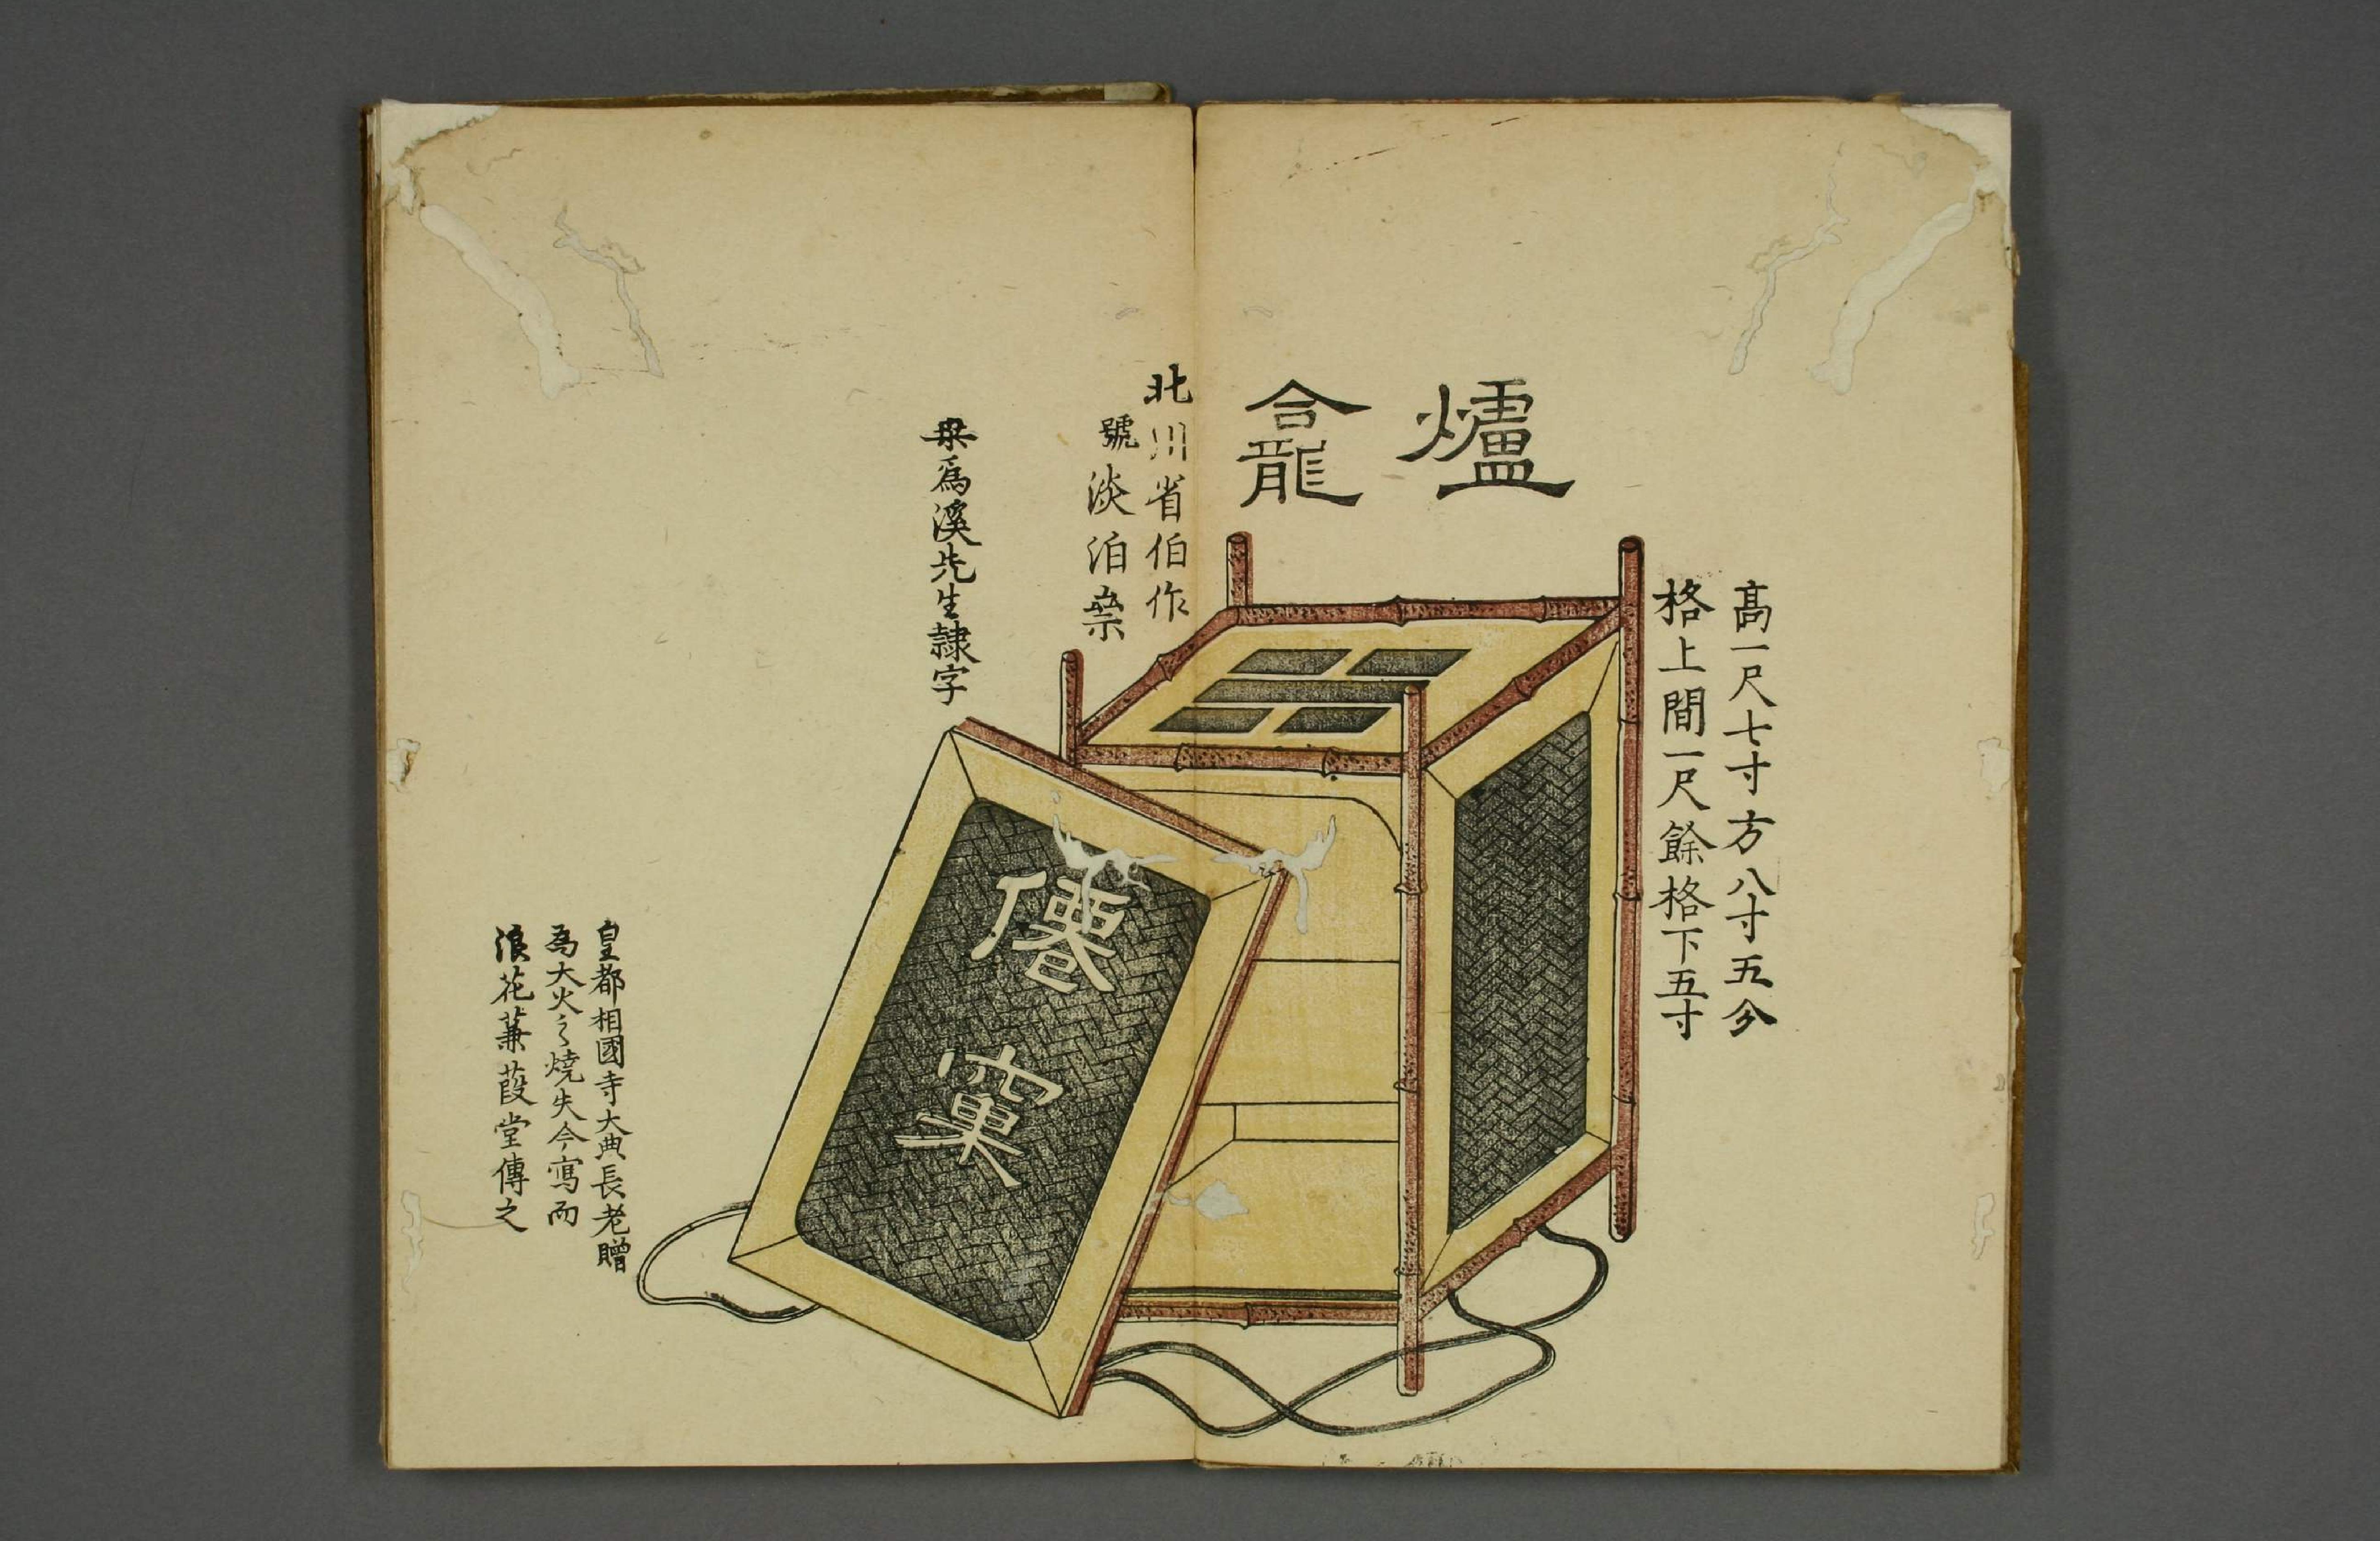 爐龕
高一尺七寸方八寸五分
格上間一尺餘格下五寸
北川省伯作
號淡泊斎
桒為溪先生隷字
僊
窠
皇都相國寺大典長老贈
為大火之燒失今寫而
浪花蒹葭堂傳之